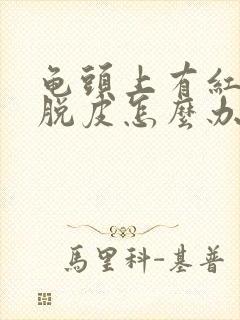 龟頭上有紅
脫皮怎麼办
馬里科-基普